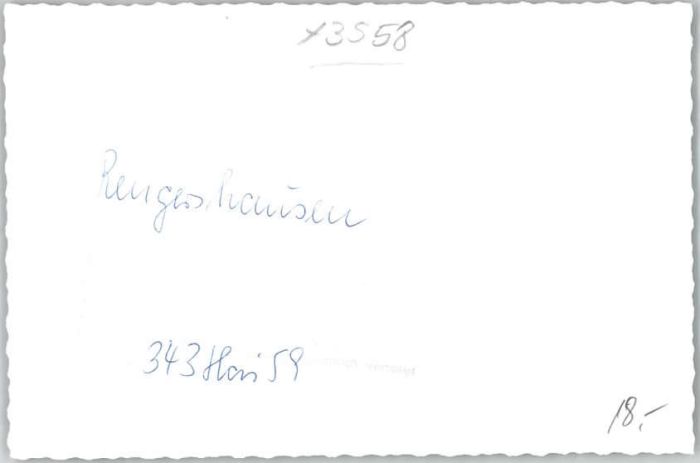 x3558
Rengershausen
343 Hai 59
18.-